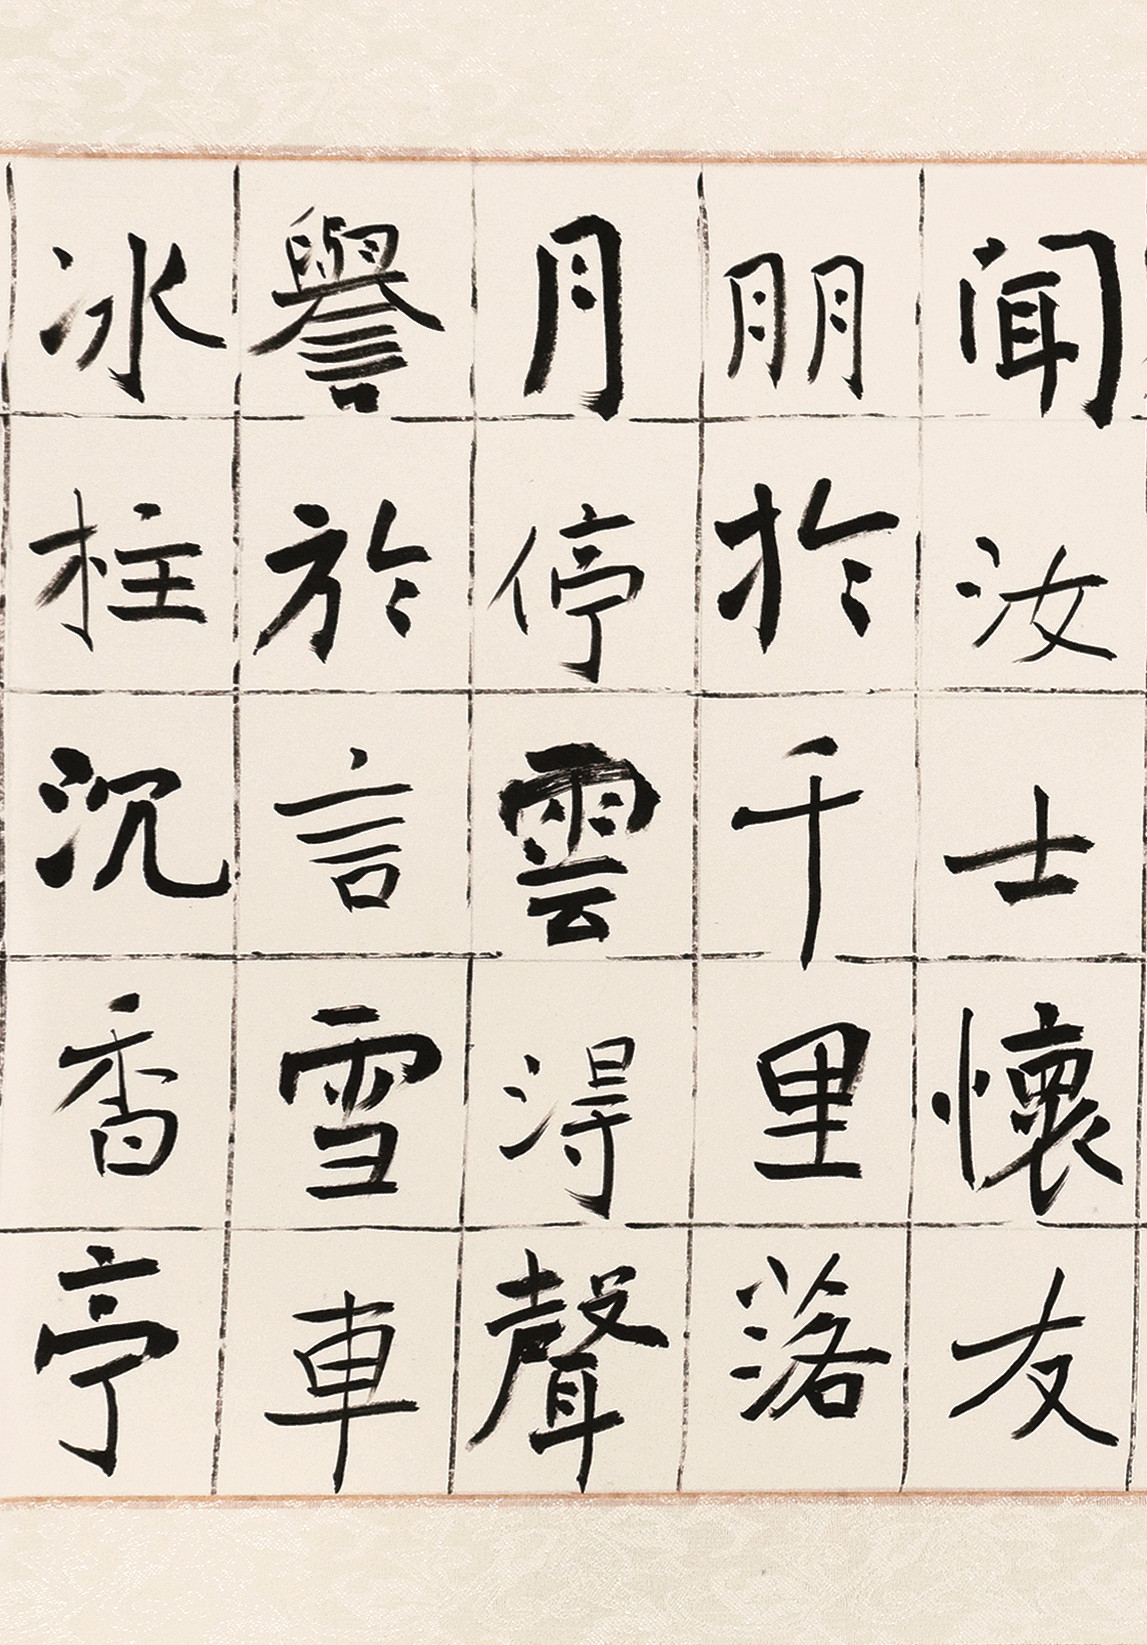 聞汝士懷友
朋於千里落
月停雲得聲
譽於言雪車
冰柱沉香亭